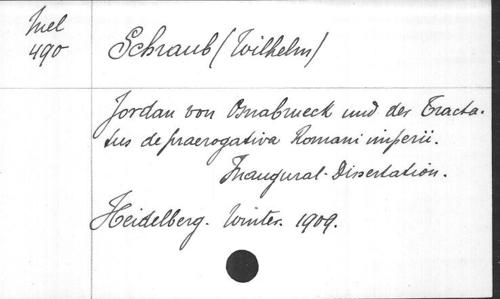 Mel
490
Schraub (Wilhelm)
Jordan von Osnabrueck und der Tracta-
tus de praerogativa Romani imperii.
Inaugural-Dissertation.
Heidelberg. Winter. 1909.